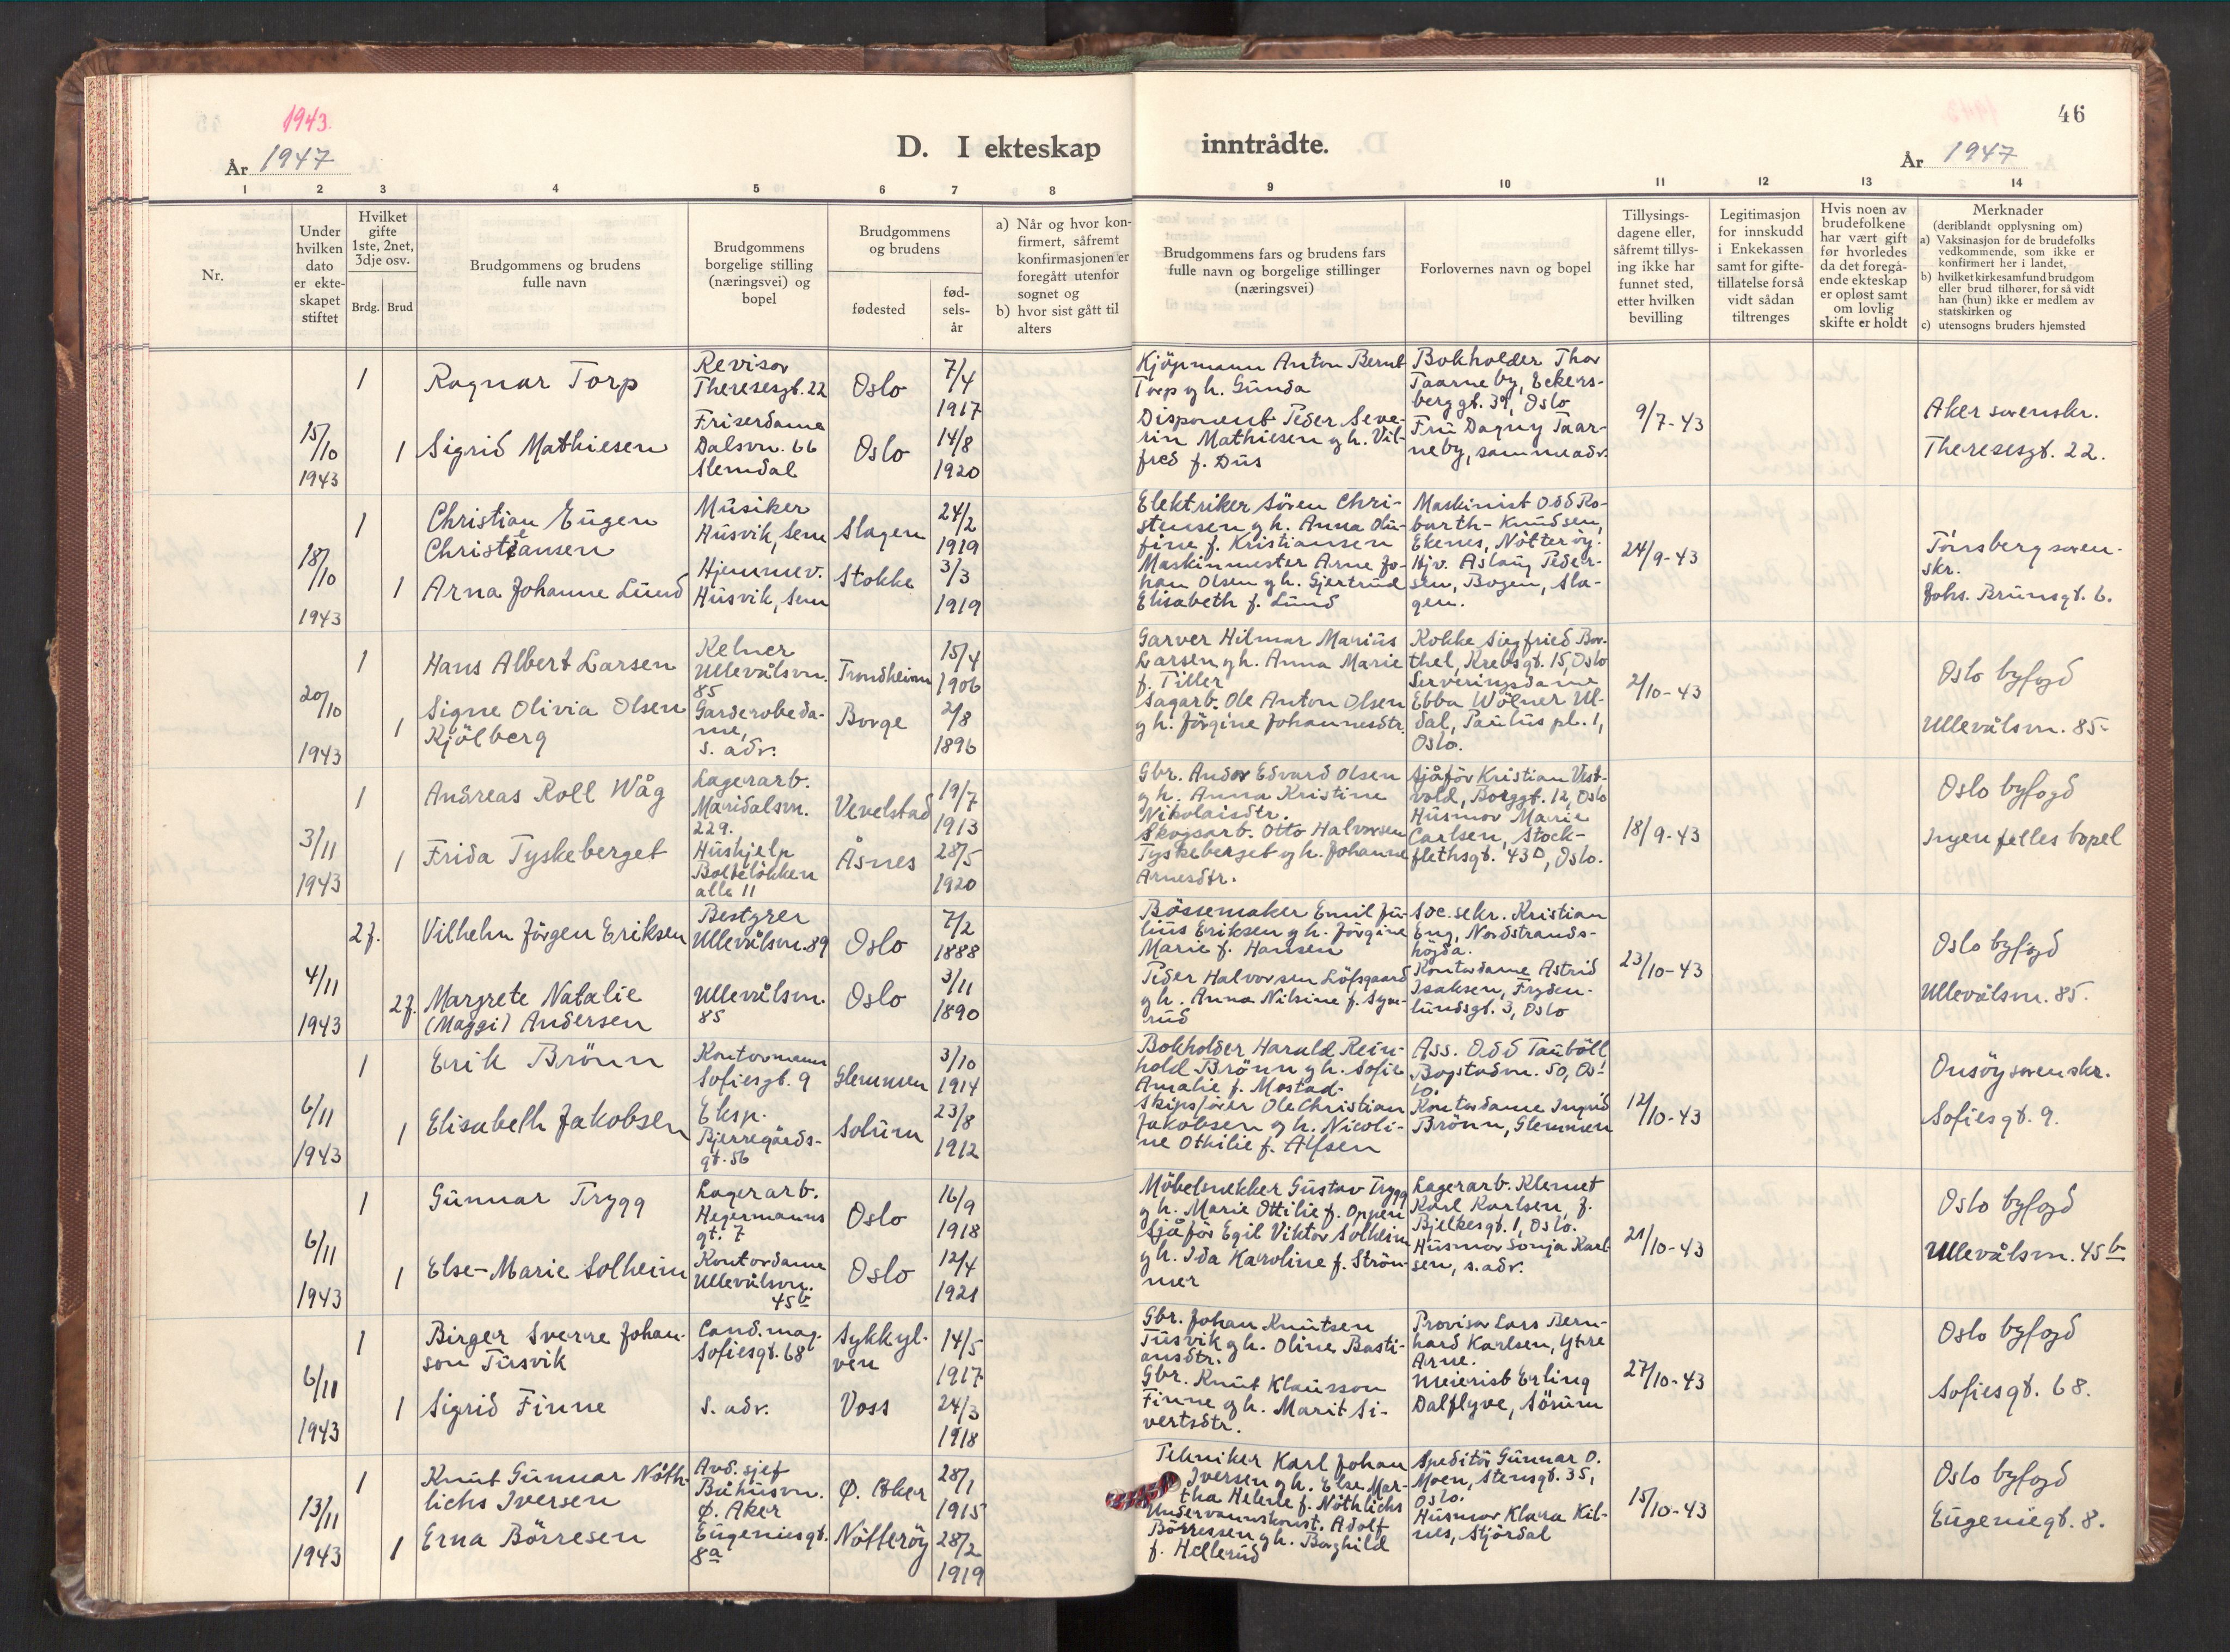 1943.
År 1947
D. I ekteskap inntrådte.
46
År 1947
1 2 3 4 5 6 7 8 9 10 11 12 13 14
Nr.
Under
hvilken
dato
er ekte-
skapet
stiftet
Hvilket
gifte
1ste, 2net,
3dje osv.
Brdg.
Brud
Brudgommens og brudens
fulle navn
Brudgommens
borgelige stilling
(næringsvei) og
bopel
Brudgommens
og brudens
fødested
fød-
sels-
år
a) Når og hvor kon-
firmert, såfremt
konfirmasjonen er
foregått utenfor
sognet og
b) hvor sist gått til
alters
Brudgommens fars og brudens fars
fulle navn og borgelige stillinger
(næringsvei)
Forlovernes navn og bopel
Tillysings-
dagene eller,
såfremt tillys-
ing ikke har
funnet sted,
etter hvilken
bevilling
Legitimasjon
for innskudd
i Enkekassen
samt for gifte-
tillatelse for så
vidt sådan
tiltrenges
Hvis noen av
brudefolkene
har vært gift
før hvorledes
da det foregå-
ende ekteskap
er opløst samt
om lovlig
skifte er holdt
Merknader
(deriblandt opplysning om)
a) Vaksinasjon for de brudefolks
vedkommende, som ikke er
konfirmert her i landet,
b) hvilket kirkesamfund brudgom
eller brud tilhører, for så vidt
han (hun) ikke er medlem av
statskirken og
c) utensogns bruders hjemsted
15/10
1943
1
Ragnar Torp
Revisor
Theresesgt. 22
Oslo
7/4
1917
1
Sigrid Mathiesen
Friserdame
Dalsvn. 66
Slemdal
Oslo
14/8
1920
Kjöpmann Anton Bernt
Torp g h. Gunda
Disponent Peder Seve-
rin Mathiesen g h. Vil-
fred f. Dus
Bokholder Thor
Taarneby, Eckers-
berg gt. 39, Oslo
Fru Dagny Taar-
neby, samme adr.
9/7-43
Aker sorenskr.
Theresesgt. 22.
18/10
1943
1
Christian Eugen
Christiansen
Musiker
Husvik, Sem
Slagen
24/2
1919
1
Arna Johanne Lund
Hjemmev.
Husvik, Sem
Stokke
3/3
1919
Elektriker Sören Chri-
stensen g h. Anna Olu-
fine f. Kristiansen
Maskinmester Arne Jo-
han Olsen g h. Gjertrud
Elisabeth f. Lund
Maskinist Odd Ro-
barth-Knudsen,
Ekenes, Nötteröy.
Hjv. Aslaug Peder-
sen, Bogen, Sla-
gen.
24/9-43
Tönsberg soren-
skr.
Johs. Brunsgt. 6.
20/10
1943
1
Hans Albert Larsen
Kelner
Ullevålsvn.
85
Trondheim
15/4
1906
1
Signe Olivia Olsen
Kjölberg
Garderobeda-
me,
s. adr.
Borge
2/8
1896
Garver Hilmar Marius
Larsen g h. Anna Marie
f. Tiller
Sagarb. Ole Anton Olsen
g h. Jörgine Johannesdtr.
Kokke Siegfried Bar-
thel, Krebsgt. 15, Oslo
Serveringsdame
Ebba Wölner Ul-
dal, Paulus pl. 1,
Oslo.
2/10-43
Oslo byfogd
Ullevålsvn. 85-
3/11
1943
1
Andreas Roll Wåg
Lagerarb.
Maridalsvn.
229.
Vevelstad
19/7
1913
1
Frida Tyskeberget
Hushjelp
Bolteløkken
alle 11
Åsnes
28/5
1920
Gbr. Andor Edvard Olsen
g h. Anna Kristine
Nikolaisdtr.
Skogsarb. Otto Halvorsen
Tyskeberget g h. Johanne
Arnesdtr.
Sjåför Kristian Vest-
vold, Borggt. 12, Oslo
Husmor Marie
Carlsen, Stock-
flethsgt. 43D, Oslo.
18/9-43
Oslo byfogd
Ingen felles bopel
4/11
1943
2 f.
Vilhelm Jörgen Eriksen
Bestyrer
Ullevålsvn. 89
Oslo
7/2
1888
2 f.
Margrete Natalie
(Maggi) Andersen
Ullevålsvn.
85
Oslo
3/11
1890
Bössemaker Emil Ju-
lius Eriksen g h. Jörgine
Marie f. Hansen
Peder Halvorsen Löfsgaard
g h. Anna Nilsine f. Syve-
rud
Soc. sekr. Kristian
Eng, Nordstrands-
högda.
Kontordame Astrid
Isaksen, Fryden-
lundsgt. 3, Oslo
23/10-43
Oslo byfogd
Ullevålsvn. 85.
6/11
1943
1
Erik Brönn
Kontormann
Sofiesgt. 9
Glemmen
3/10
1914
1
Elisabeth Jakobsen
Eksp.
Bjerregårds-
gt. 56
Solum
23/8
1912
Bokholder Harald Rein-
hold Brönn g h. Sofie
Amalie f. Mostad.
Skipsfører Ole Christian
Jakobsen g h. Nicoli-
ne Othilie f. Alfsen
Ass. Odd Tauböll,
Bogstadvn. 50, Os-
lo.
Kontordame Ingrid
Brönn, Glemmen
12/10-43
Onsöy sorenskr.
Sofiesgt. 9.
6/11
1943
1
Gunnar Trygg
Lagerarb.
Hegermanns
gt. 7
Oslo
16/9
1918
1
Else-Marie Solheim
Kontordame
Ullevålsvn.
45 b
Oslo
12/4
1921
Möbelsnekker Gustav Trygg
g h. Marie Ottilie f. Oppen
Sjåför Egil Viktor Solheim
g h. Ida Karoline f. Ström-
mer
Lagerarb. Klemet
Karl Karlsen, J.
Bjelkesgt. 1, Oslo.
Husmor Sonja Karl-
sen, s. adr.
21/10-43
Oslo byfogd
Ullevålsvn. 45 b
6/11
1943
1
Birger Sverre Johan-
son Tusvik
Cand. mag.
Sofiesgt. 68
Sykkyl-
ven
14/5
1917
1
Sigrid Finne
s. adr.
Voss
24/3
1918
Gbr. Johan Knutsen
Tusvik g h. Oline Basti-
ansdtr.
Gbr. Knut Klausson
Finne g h. Marit Si-
vertsdtr.
Provisor Lars Bern-
hard Karlsen, Ytre
Arne.
Meierist Erling
Dalflyve, Sörum
27/10-43
Oslo byfogd
Sofiesgt. 68.
13/11
1943
1
Knut Gunnar Nöth-
lichs Iversen
Avd. sjef
Båhusvn.
Ø. Aker
Ø. Aker
28/1
1915
1
Erna Börresen
Eugeniesgt.
8 a
Nötteröy
28/2
1919
Tekniker Karl Johan
Iversen g h. Else Mar-
tha Helene f. Nöthlichs
Undervannskonst. Adolf
Börressen g h. Borghild
f. Hellerud
Speditör Gunnar O.
Moen, Stensgt. 35,
Oslo.
Husmor Klara Kil-
nes, Stjördal
15/10-43
Oslo byfogd
Eugeniegt. 8.